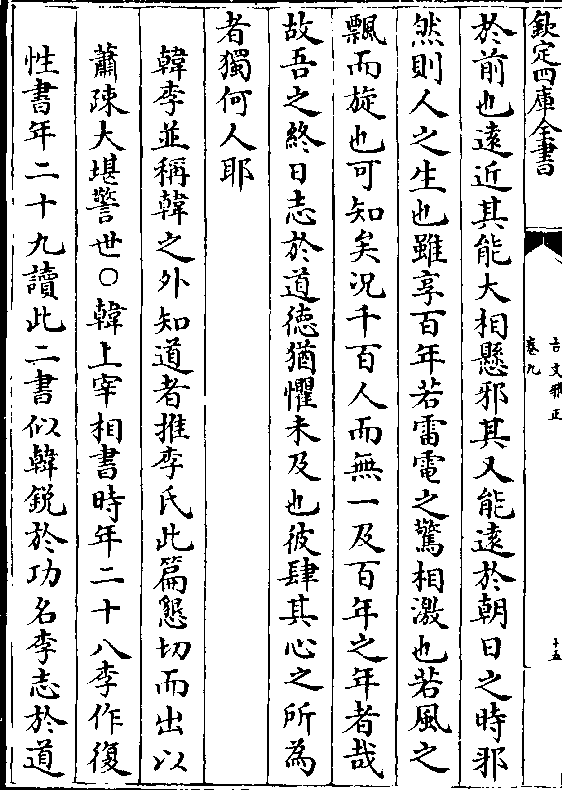 欽定四庫全書
古文雅正
卷九
十五
於前也遠近其能大相懸邪其又能遠於朝日之時邪
然則人之生也雖享百年若雷電之驚相激也若風之
飄而旋也可知矣况千百人而無一及百年之年者哉
故吾之終日志於道徳猶懼未及也彼肆其心之所為
者獨何人耶
韓李並稱韓之外知道者推李氏此篇懇切而出以
蕭踈大堪警世○韓上宰相書時年二十八李作復
性書年二十九讀此二書似韓鋭於功名李志於道